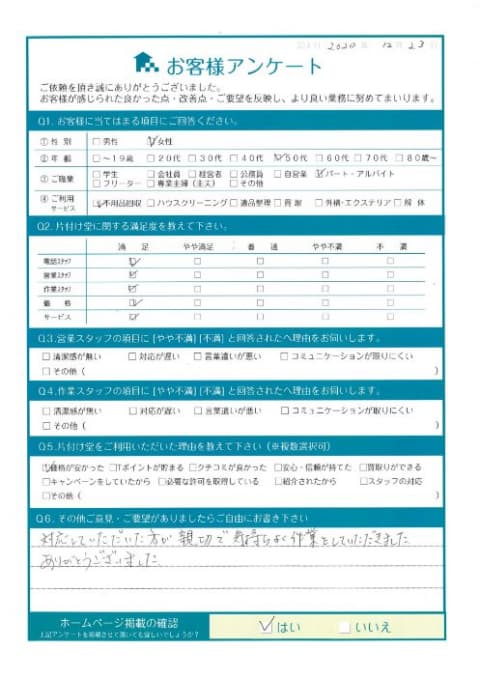 2020年 12月 23日
お客様アンケート
ご依頼を頂き誠にありがとうございました。
お客様が感じられた良かった点・改善点・ご要望を反映し、より良い業務に努めてまいります。
Q1. お客様に当てはまる項目にご回答ください。
①性 別 □男性 ☑女性
②年 齢 □～19歳 □20代 □30代 □40代 ☑50代 □60代 □70代 □80歳～
③ご職業 □学生 □会社員 □経営者 □公務員 □自営業 ☑パート・アルバイト
□フリーター □専業主婦（主夫） □その他
④ご利用サービス ☑不用品回収 □ハウスクリーニング □遺品整理 □買取 □外構・エクステリア □解 体
Q2. 片付け堂に関する満足度を教えて下さい。
満 足 やや満足 普 通 やや不満 不 満
電話スタッフ ☑ □ □ □ □
営業スタッフ ☑ □ □ □ □
作業スタッフ ☑ □ □ □ □
価 格 ☑ □ □ □ □
サービス ☑ □ □ □ □
Q3. 営業スタッフの項目に [やや不満] [不満] と回答されたへ理由をお伺いします。
□清潔感が無い □対応が遅い □言葉遣いが悪い □コミュニケーションが取りにくい
□その他（ ）
Q4. 作業スタッフの項目に [やや不満] [不満] と回答されたへ理由をお伺いします。
□清潔感が無い □対応が遅い □言葉遣いが悪い □コミュニケーションが取りにくい
□その他（ ）
Q5. 片付け堂をご利用いただいた理由を教えて下さい（※複数選択可）
☑価格が安かった □Tポイントが貯まる □クチコミが良かった □安心・信頼が持てた □買取りができる
□キャンペーンをしていたから □必要な許可を取得している □紹介されたから □スタッフの対応
□その他（ ）
Q6. その他ご意見・ご要望がありましたらご自由にお書き下さい
対応していただいた方が親切で気持ちよく作業をしていただきました
ありがとうございました
ホームページ掲載の確認 ☑はい □いいえ
上記アンケートを掲載させて頂いても宜しいでしょうか？